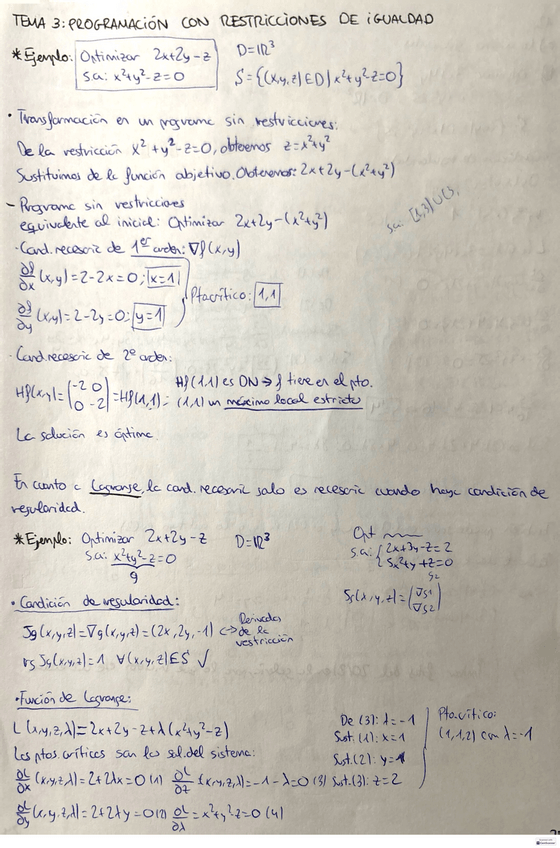 TEMA 3: PROGRAMACIÓN CON RESTRICCIONES DE IGUALDAD
* Ejemplo: Optimizar 2x+2y-z D=ℝ³
s.a: x²+y²-z=0 S={(x,y,z)∈D | x²+y²-z=0}
• Transformación en un programa sin restricciones:
De la restricción x²+y²-z=0, obtenemos z=x²+y²
Sustituimos de la función objetivo. Obtenemos: 2x+2y-(x²+y²)
- Programa sin restricciones
equivalente al inicial: Optimizar 2x+2y-(x²+y²)
· Cond. necesaria de 1er orden: ∇f(x,y)
∂f/∂x (x,y)=2-2x=0; x=1
Pto crítico: 1,1
∂f/∂y (x,y)=2-2y=0; y=1
· Cond. necesaria de 2º orden:
Hf(x,y)=(-2 0 / 0 -2)=Hf(1,1): Hf(1,1) es DN → f tiene en el pto.
(1,1) un máximo local estricto
La solución es óptima.
En cuanto a Lagrange, la cond. necesaria solo es necesaria cuando haya condición de
regularidad.
* Ejemplo: Optimizar 2x+2y-z D=ℝ³
s.a: x²+y²-z=0
g
Opt
s.a: { 2x+3y-z=2
5x²+y+z=0
• Condición de regularidad:
Jg(x,y,z)=∇g(x,y,z)=(2x,2y,-1) ↔ Derivadas de la restricción
rg Jg(x,y,z)=1 ∀(x,y,z)∈S ✓
Jg(x,y,z)=(∇g1 / ∇g2)
· Función de Lagrange:
L(x,y,z,λ)=2x+2y-z+λ(x²+y²-z)
Los ptos. críticos son las sol. del sistema:
∂L/∂x (x,y,z,λ)=2+2λx=0 (1) ∂L/∂z (x,y,z,λ)=-1-λ=0 (3)
∂L/∂y (x,y,z,λ)=2+2λy=0 (2) ∂L/∂λ = x²+y²-z=0 (4)
De (3): λ=-1
Sust. (1): x=1
Sust. (2): y=1
Sust. (3): z=2
Pto. crítico:
(1,1,2) con λ=-1